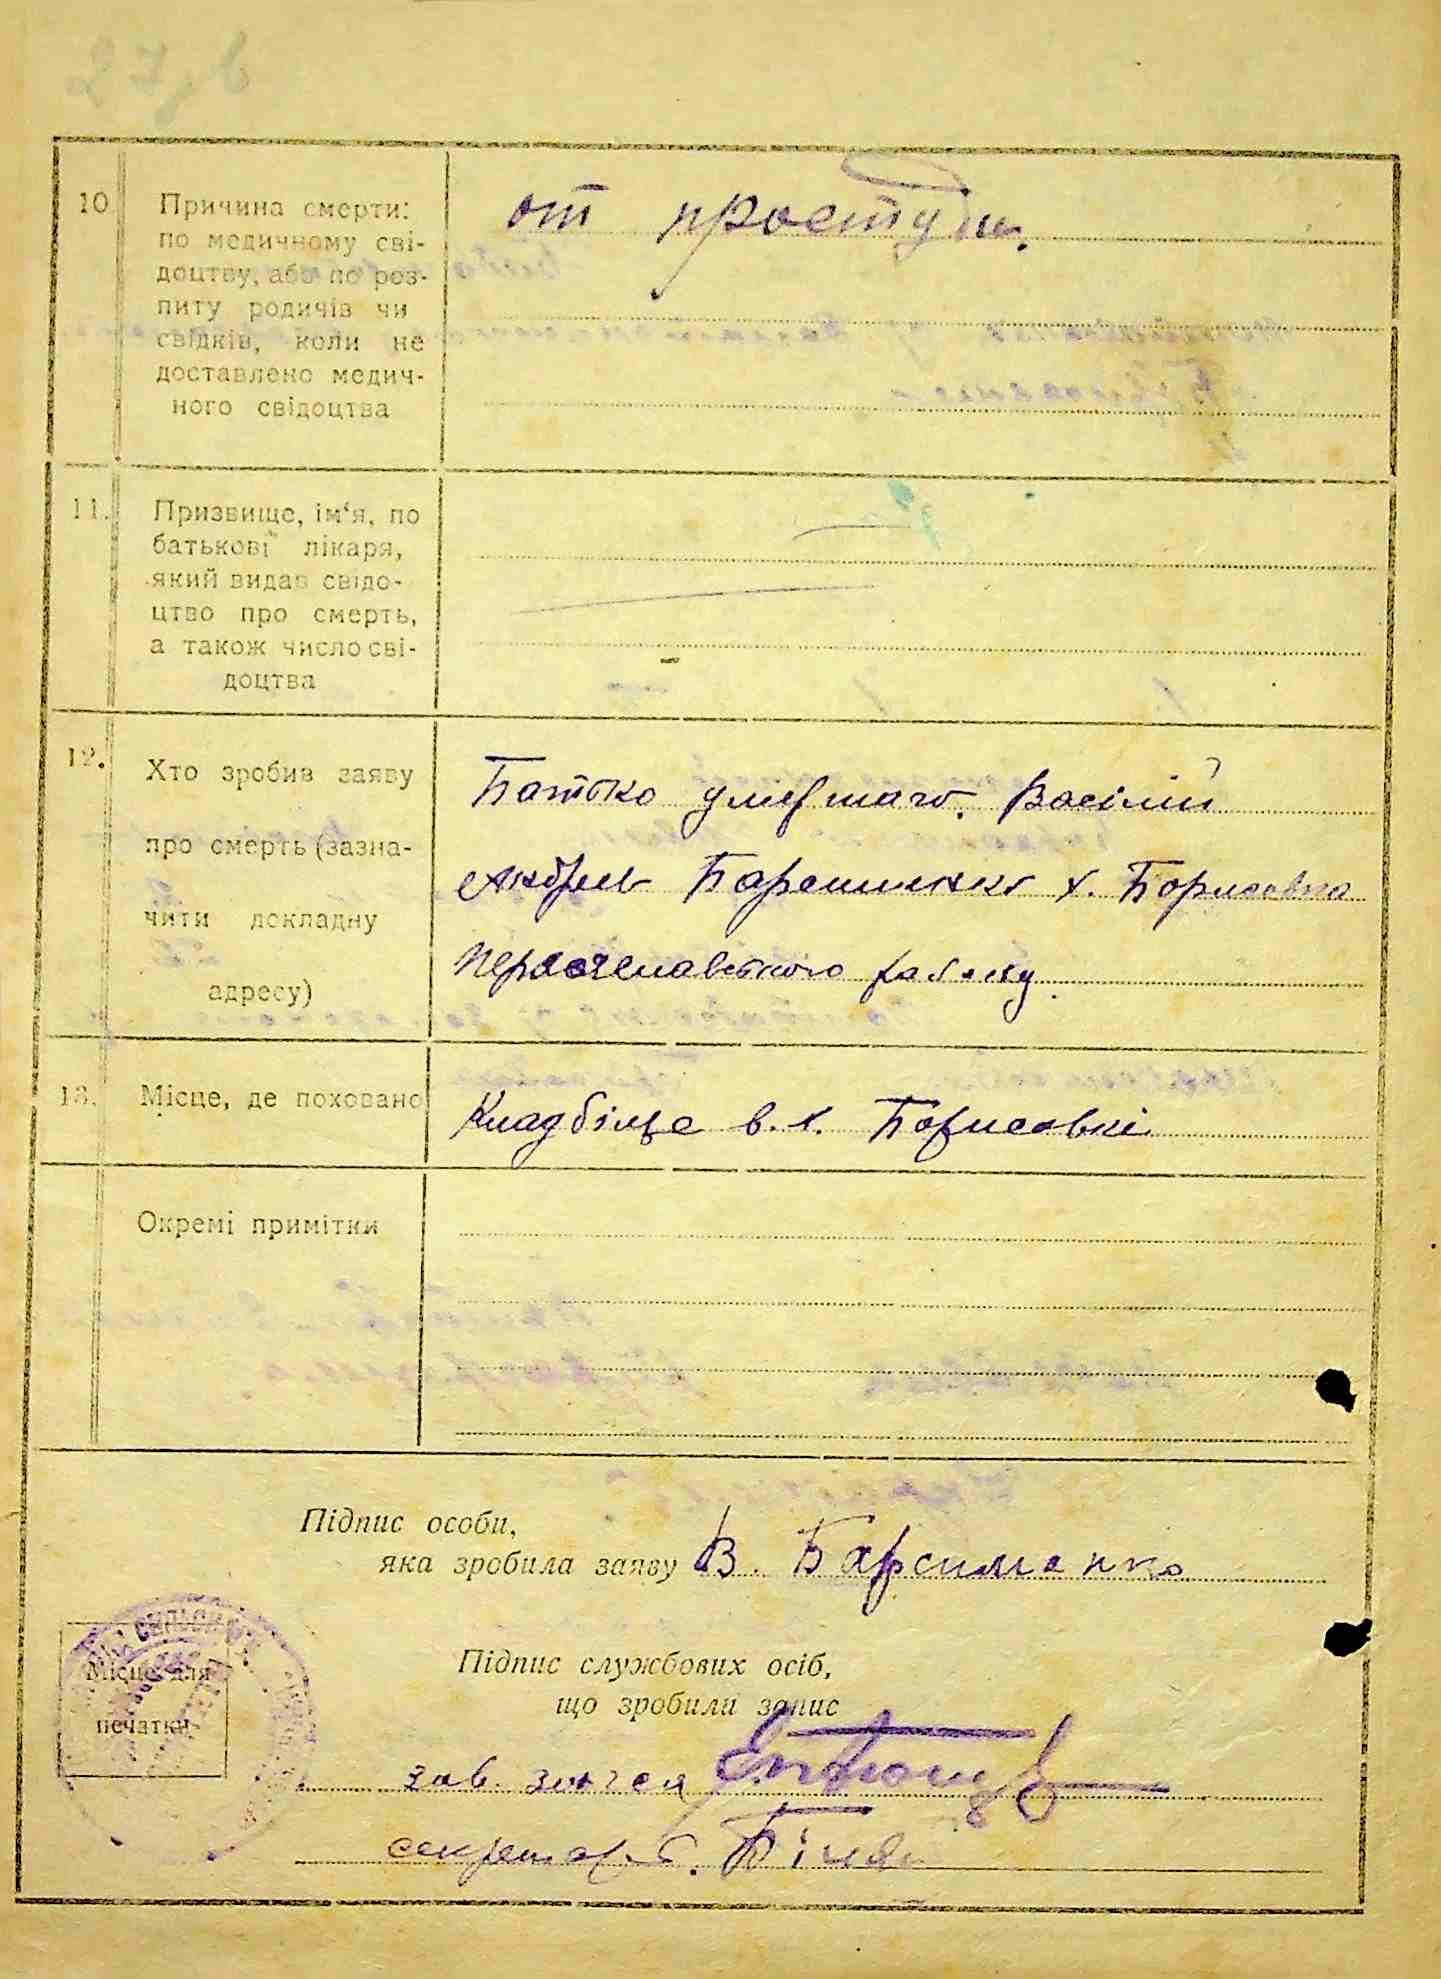 10
Причина смерти:
по медичному сві-
доцтву, або по роз-
питу родичів чи
свідків, коли не
доставлено медич-
ного свідоцтва
от простуди.
11.
Призвище, ім'я, по
батькові лікаря,
який видав свідо-
цтво про смерть,
а також число сві-
доцтва
12.
Хто зробив заяву
про смерть (зазна-
чити докладну
адресу)
Батько умершаго. Васілій
Андрев х. Борисовка
району
13.
Місце, де поховано
Кладбіще в. х. Борисовкі
Окремі примітки
Підпис особи,
яка зробила заяву В.
Місце для
печатки
Підпис службових осіб,
що зробили запис
зав. загсом
секретарь.